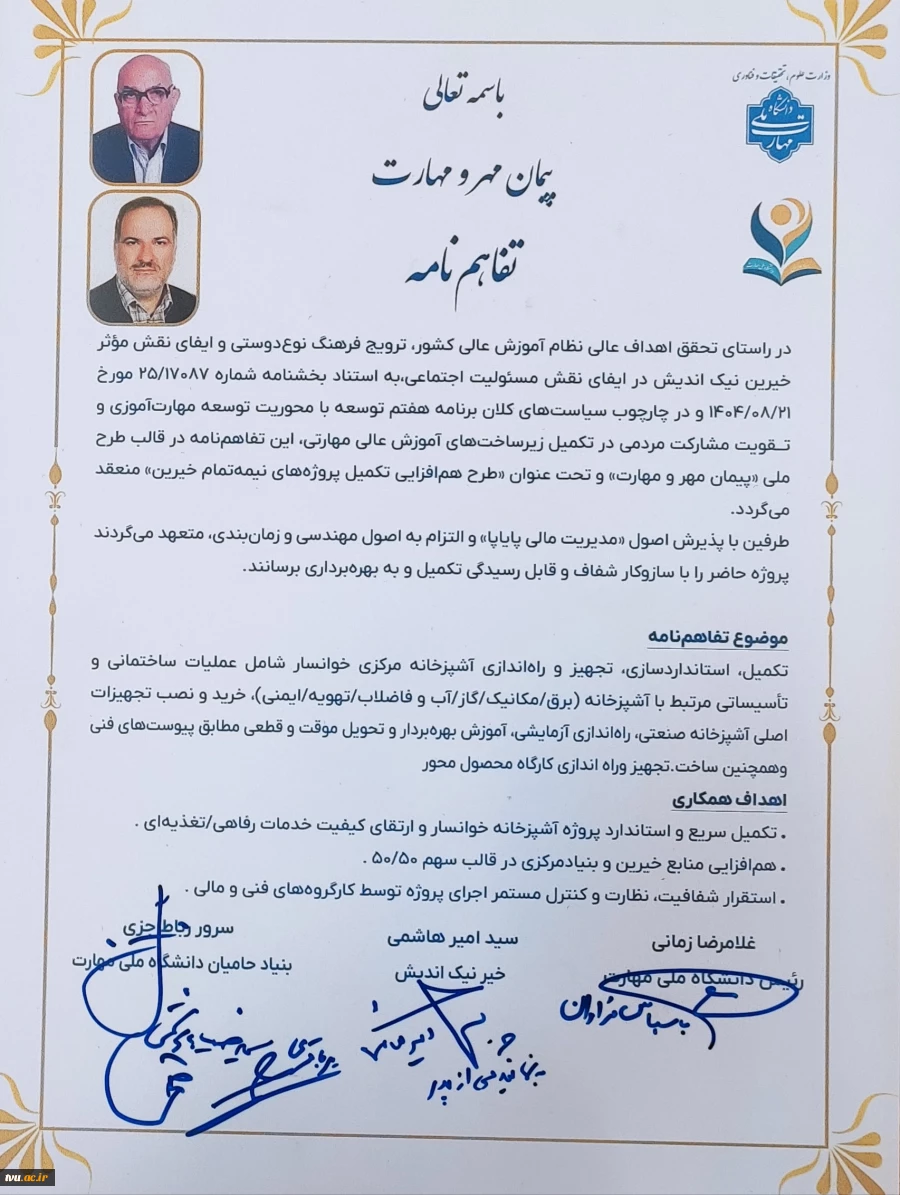 باسمه تعالی
وزارت علوم، تحقیقات و فناوری
دانشگاه ملی مهارت
پیمان مهر و مهارت
تفاهم نامه
در راستای تحقق اهداف عالی نظام آموزش عالی کشور، ترویج فرهنگ نوع‌دوستی و ایفای نقش مؤثر
خیرین نیک اندیش در ایفای نقش مسئولیت اجتماعی،به استناد بخشنامه شماره ۲۵/۱۷۰۸۷ مورخ
۱۴۰۴/۰۸/۲۱ و در چارچوب سیاست‌های کلان برنامه هفتم توسعه با محوریت توسعه مهارت‌آموزی و
تـقویت مشارکت مردمی در تکمیل زیرساخت‌های آموزش عالی مهارتی، این تفاهم‌نامه در قالب طرح
ملی «پیمان مهر و مهارت» و تحت عنوان «طرح هم‌افزایی تکمیل پروژه‌های نیمه‌تمام خیرین» منعقد
می‌گردد.
طرفین با پذیرش اصول «مدیریت مالی پایاپا» و التزام به اصول مهندسی و زمان‌بندی، متعهد می‌گردند
پروژه حاضر را با سازوکار شفاف و قابل رسیدگی تکمیل و به بهره‌برداری برسانند.
موضوع تفاهم‌نامه
تکمیل، استانداردسازی، تجهیز و راه‌اندازی آشپزخانه مرکزی خوانسار شامل عملیات ساختمانی و
تأسیساتی مرتبط با آشپزخانه (برق/مکانیک/گاز/آب و فاضلاب/تهویه/ایمنی)، خرید و نصب تجهیزات
اصلی آشپزخانه صنعتی، راه‌اندازی آزمایشی، آموزش بهره‌بردار و تحویل موقت و قطعی مطابق پیوست‌های فنی
وهمچنین ساخت.تجهیز وراه اندازی کارگاه محصول محور
اهداف همکاری
• تکمیل سریع و استاندارد پروژه آشپزخانه خوانسار و ارتقای کیفیت خدمات رفاهی/تغذیه‌ای .
• هم‌افزایی منابع خیرین و بنیادمرکزی در قالب سهم ۵۰/۵۰ .
• استقرار شفافیت، نظارت و کنترل مستمر اجرای پروژه توسط کارگروه‌های فنی و مالی .
غلامرضا زمانی
رئیس دانشگاه ملی مهارت
سید امیر هاشمی
خیر نیک اندیش
سرور رباط جزی
بنیاد حامیان دانشگاه ملی مهارت
با سپاس فراوان
tvu.ac.ir